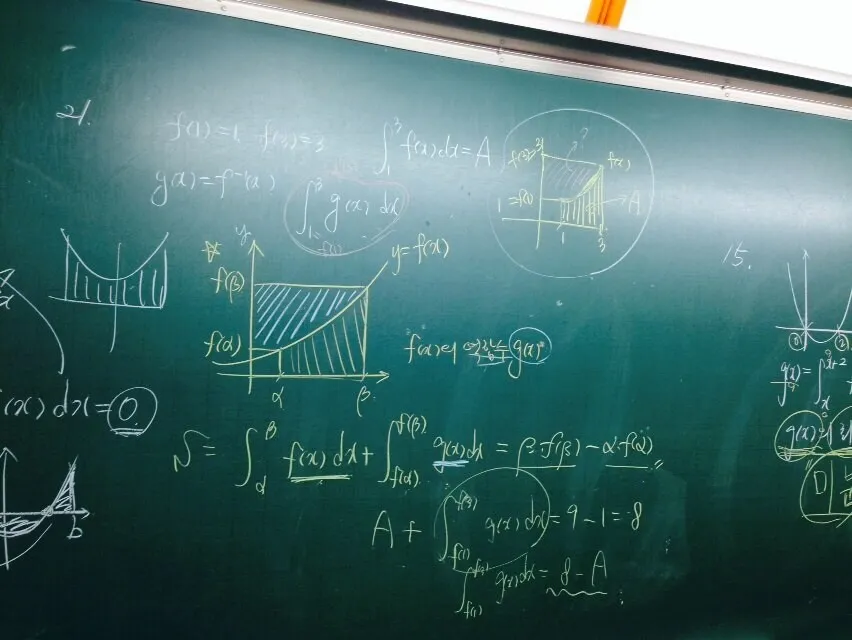 21.
f(1)=1 f(3)=3
∫₁³ f(x)dx=A
g(x)=f⁻¹(x)
∫₁³ g(x) dx
f(1)
?
f(3)=3
f(x)
1=f(1)
A
1
3
y
y=f(x)
f(β)
f(α)
α
β
f(x)의
g(x)
S = ∫_α^β f(x)dx+ ∫_{f(α)}^{f(β)} g(x)dx = β·f(β)-α·f(α)
A + ∫_{f(1)}^{f(3)} g(x)dx=9-1=8
∫_{f(1)}^{f(3)} g(x)dx= 8-A
(x)dx=0
b
15.
g(x)=∫_x^{x+2}
g(x)=